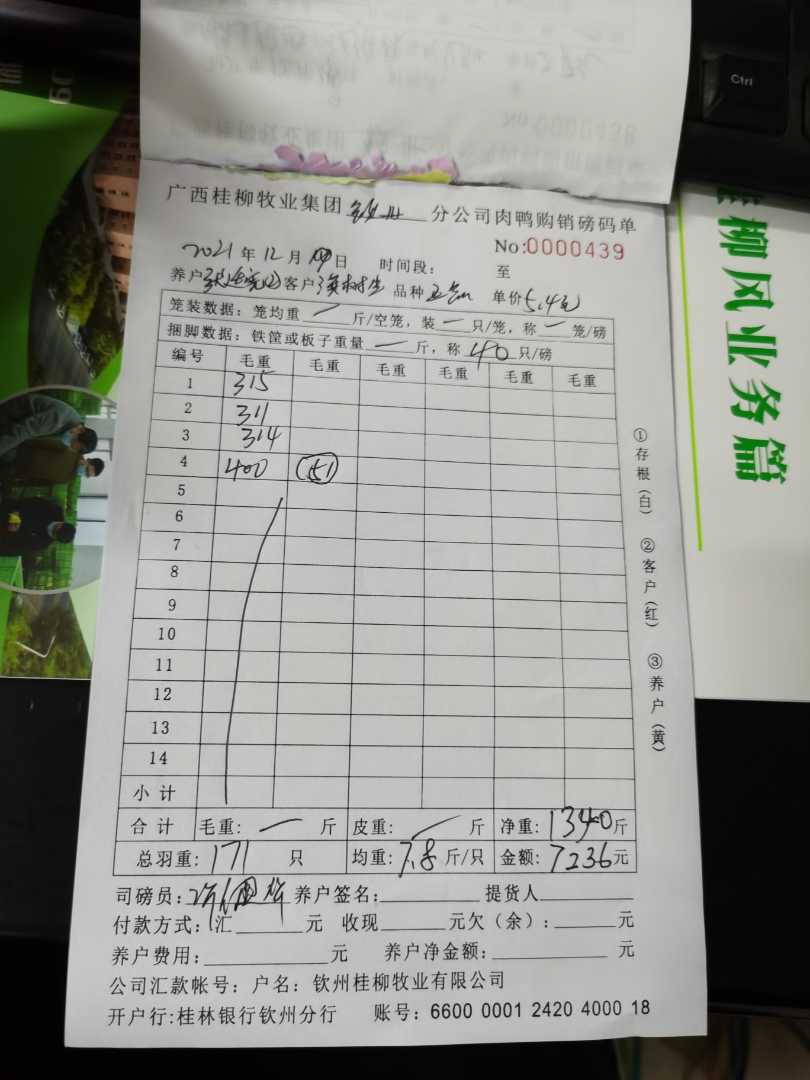 Ctrl
No:0000438
广西桂柳牧业集团 钦州 分公司肉鸭购销磅码单
No:0000439
2021年12月09日 时间段: 至
养户 客户 品种 单价5.4元
笼装数据:笼均重 一 斤/空笼,装一只/笼,称一笼/磅
捆脚数据:铁筐或板子重量 一 斤,称 40 只/磅
编号 毛重 毛重 毛重 毛重 毛重 毛重
1 315
2 311
3 314
4 400 (51)
5
6
7
8
9
10
11
12
13
14
小计
合计 毛重: 一 斤 皮重: 一 斤 净重: 1340斤
总羽重: 171 只 均重: 7.8 斤/只 金额: 7236元
司磅员: 养户签名: 提货人
付款方式:(汇 元 收现 元欠(余): 元
养户费用: 元 养户净金额: 元
公司汇款帐号:户名:钦州桂柳牧业有限公司
开户行:桂林银行钦州分行 账号:6600 0001 2420 4000 18
①存根(白) ②客户(红) ③养户(黄)
桂柳风业务篇